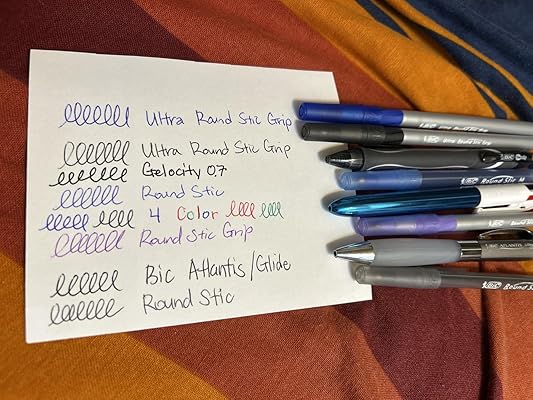 Ultra Round Stic Grip
Ultra Round Stic Grip
Gelocity 0.7
Round Stic
4 Color
Round Stic Grip
Bic Atlantis/Glide
Round Stic
BIC
BIC
BIC Round Stic M
BIC
BIC ATLANTIS
BIC Round S